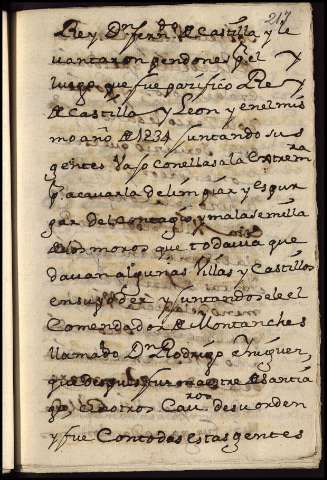 217
Rey Dn fern.do de Castilla y le
vantaron pendones P.r el y
luego que fue pacifico Rey
de Castilla y Leon y en el mis
mo año de 1234 juntando sus
gentes vajo con ellas a la Extrem.ra
P.a acavarla de limpiar y espur
gar del contagio y mala semilla
de los moros que todavia que
davan algunas Villas y Castillos
en su poder y juntandosele el
Comendador de Montanches
llamado Dn Rodrigo Iñiguez,
que despues fue maestre de Santia
go, con otros Cav.ros de su orden
y fue con todas estas gentes